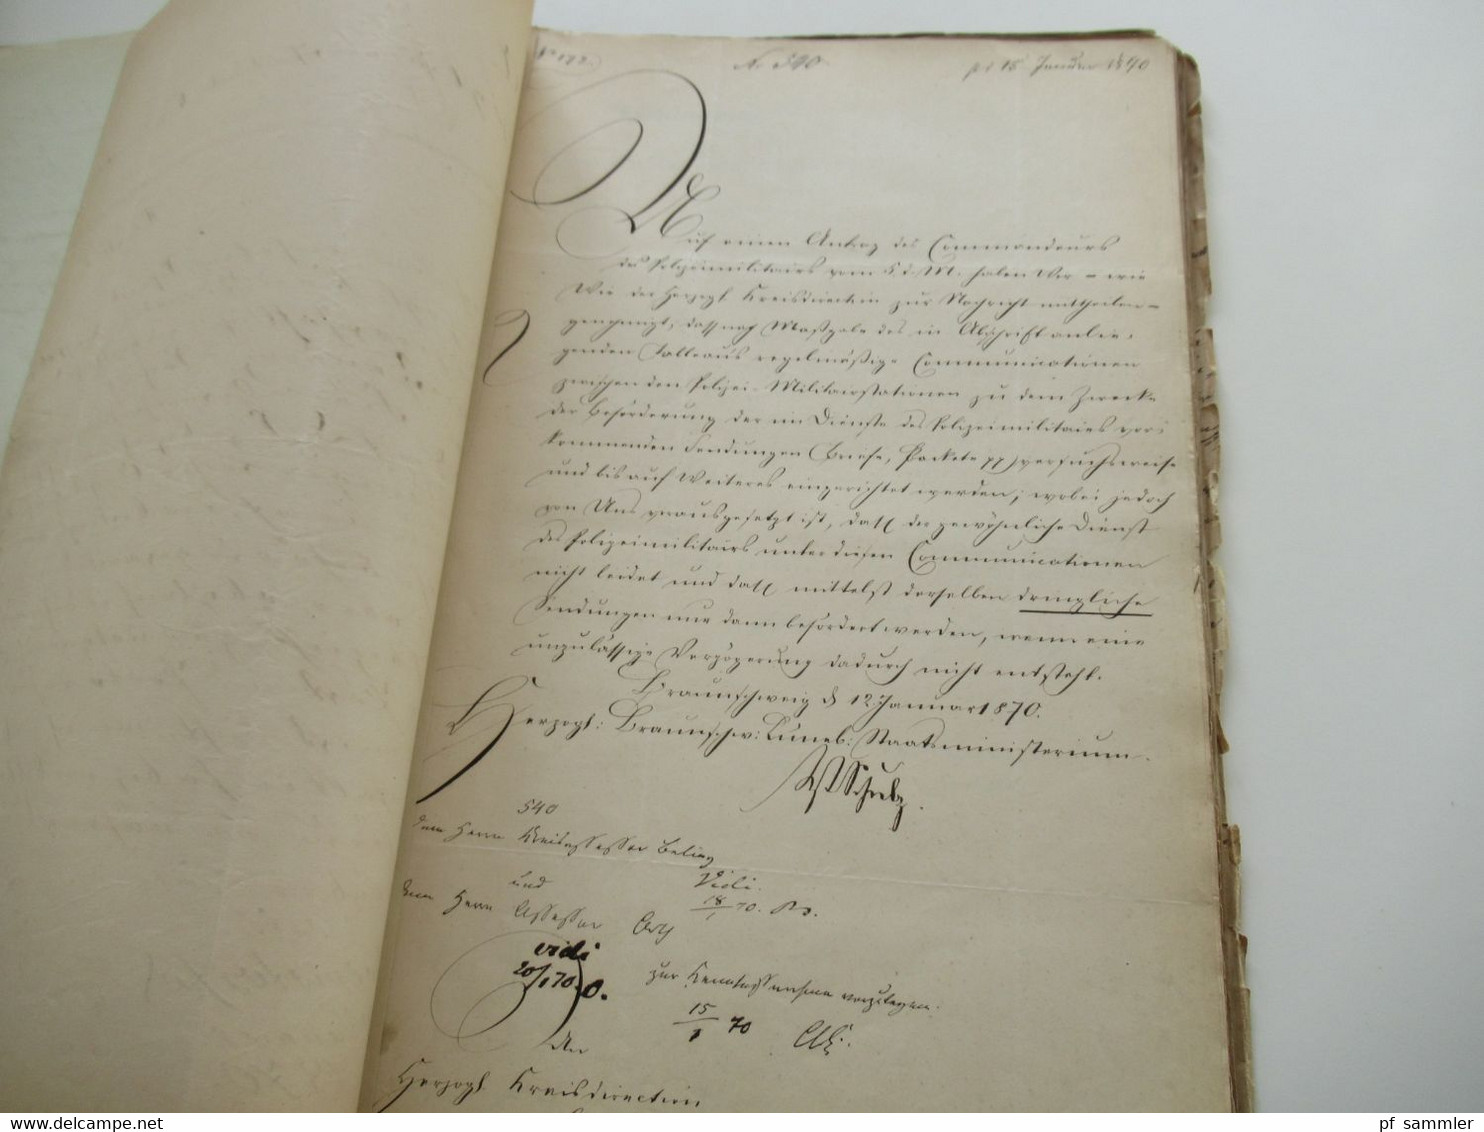 No 172.
No 540.
pr 15 Januar 1870
Auf einen Antrag des Commandeurs
des Polizeimilitairs vom 5 d. M. haben Wir – wie
Wir der Herzogl. Kreisdirection zur Nachricht mittheilen –
genehmigt, daß nach Maßgabe des in Abschrift anlie-
genden Tableaus regelmäßige Communicationen
zwischen den Polizei-Militairstationen zu dem Zwecke
der Beförderung der im Dienste des Polizeimilitairs vor-
kommenden Sendungen (Briefe, Packete pp) versuchsweise
und bis auf Weiteres eingerichtet werden, wobei jedoch
von Uns vorausgesetzt ist, daß der gewöhnliche Dienst
des Polizeimilitairs unter diesen Communicationen
nicht leidet und daß mittelst derselben dringliche
Sendungen nur dann befördert werden, wenn eine
unzulässige Verzögerung dadurch nicht entsteht.
Braunschweig d 12 Januar 1870.
Herzogl: Braunschw: Lüneb: Staatsministerium.
Schulz.
540
dem Herrn Kreisassessor Beling
und
Vidi.
18/1 70.
dem Herrn Assessor
vidi
20/1 70. O.
zur Kenntnißnahme vorzulegen.
15/1 70
An
Herzogl. Kreisdirection
pf sammler